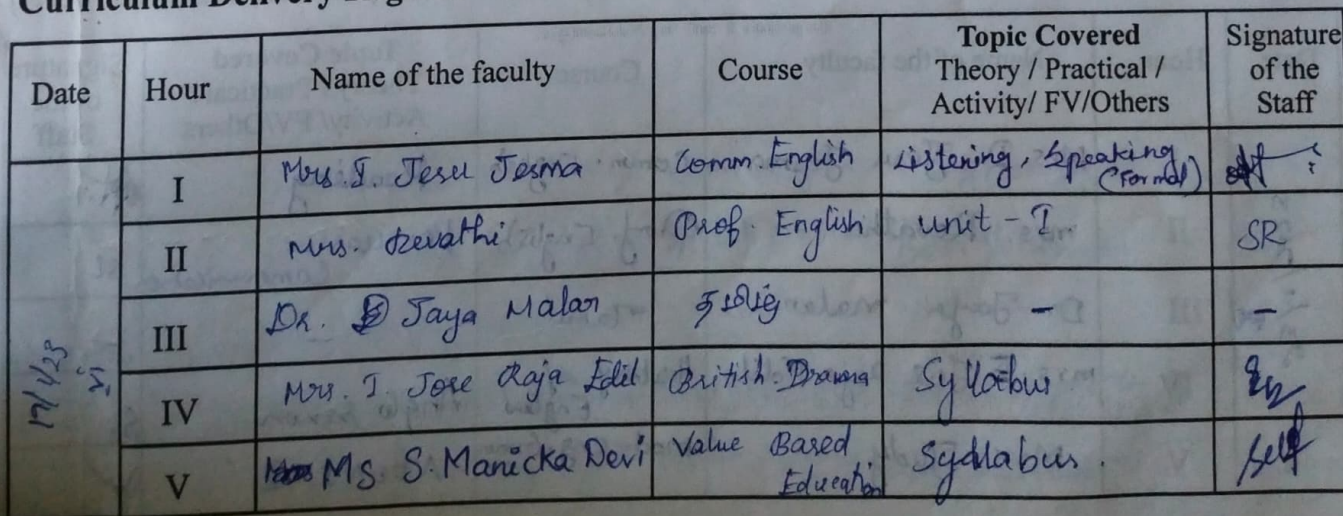 Date Hour Name of the faculty Course Topic Covered Theory / Practical / Activity/ FV/Others Signature of the Staff
I Mrs. J. Jesu Jesma Comm. English Listening, Speaking (Formal)
II Mrs. Revathi Prof. English Unit - I SR
III Dr. Jaya Malar தமிழ் - -
IV Mrs. J. Jose Raja Edil British Drama Syllabus
V Ms S. Manicka Devi Value Based Education Syllabus.